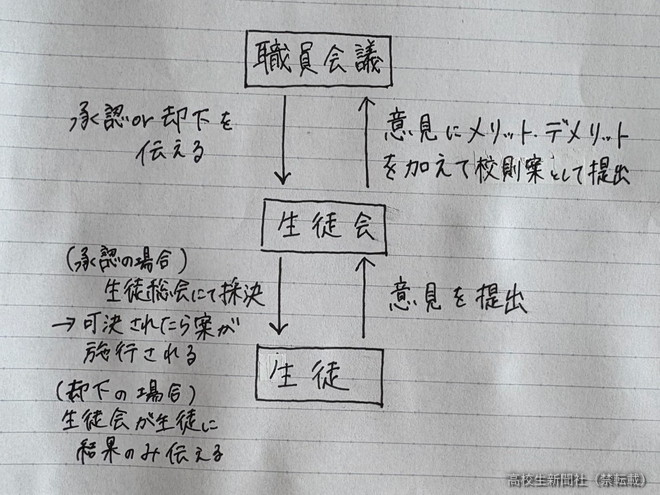 職員会議
承認or却下を
伝える
意見にメリット・デメリット
を加えて校則案として提出
生徒会
(承認の場合)
生徒総会にて採決
→可決されたら案が
施行される
意見を提出
生徒
(却下の場合)
生徒会が生徒に
結果のみ伝える
高校生新聞社(禁転載)